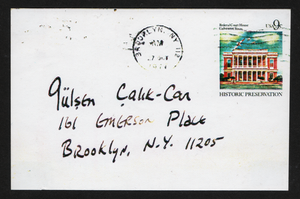 BROOKLYN, NY 112
PM
1977
Federal Court House
Galveston, Texas
USA 9c
HISTORIC PRESERVATION
Gülsen Çalık-Can
161 Emerson Place
Brooklyn, N.Y. 11205